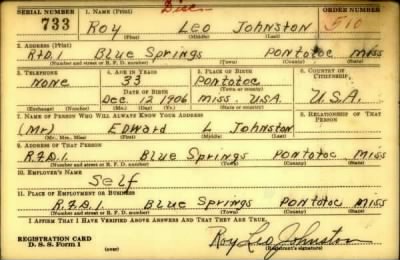 SERIAL NUMBER 1. NAME (Print) Dise ORDER NUMBER
733 Roy Leo Johnston 510
(First) (Middle) (Last)
2. ADDRESS (Print)
R.F.D.1. Blue Springs Pontotoc Miss
(Number and street or R. F. D. number) (Town) (County) (State)
3. TELEPHONE 4. AGE IN YEARS 5. PLACE OF BIRTH 6. COUNTRY OF CITIZENSHIP
None 33 Pontotoc
DATE OF BIRTH (Town or county)
Dec. 12 1906 Miss. U.S.A. U.S.A.
(Exchange) (Number) (Mo.) (Day) (Yr.) (State or country)
7. NAME OF PERSON WHO WILL ALWAYS KNOW YOUR ADDRESS 8. RELATIONSHIP OF THAT PERSON
(Mr) Edward L Johnston
(Mr., Mrs., Miss) (First) (Middle) (Last)
9. ADDRESS OF THAT PERSON
R.F.D.1. Blue Springs Pontotoc Miss
(Number and street or R. F. D. number) (Town) (County) (State)
10. EMPLOYER'S NAME
Self
11. PLACE OF EMPLOYMENT OR BUSINESS
R.F.D.1. Blue Springs Pontotoc Miss
(Number and street or R. F. D. number) (Town) (County) (State)
I AFFIRM THAT I HAVE VERIFIED ABOVE ANSWERS AND THAT THEY ARE TRUE.
REGISTRATION CARD
D. S. S. Form 1 (over) Roy Leo Johnston
(Registrant's signature)